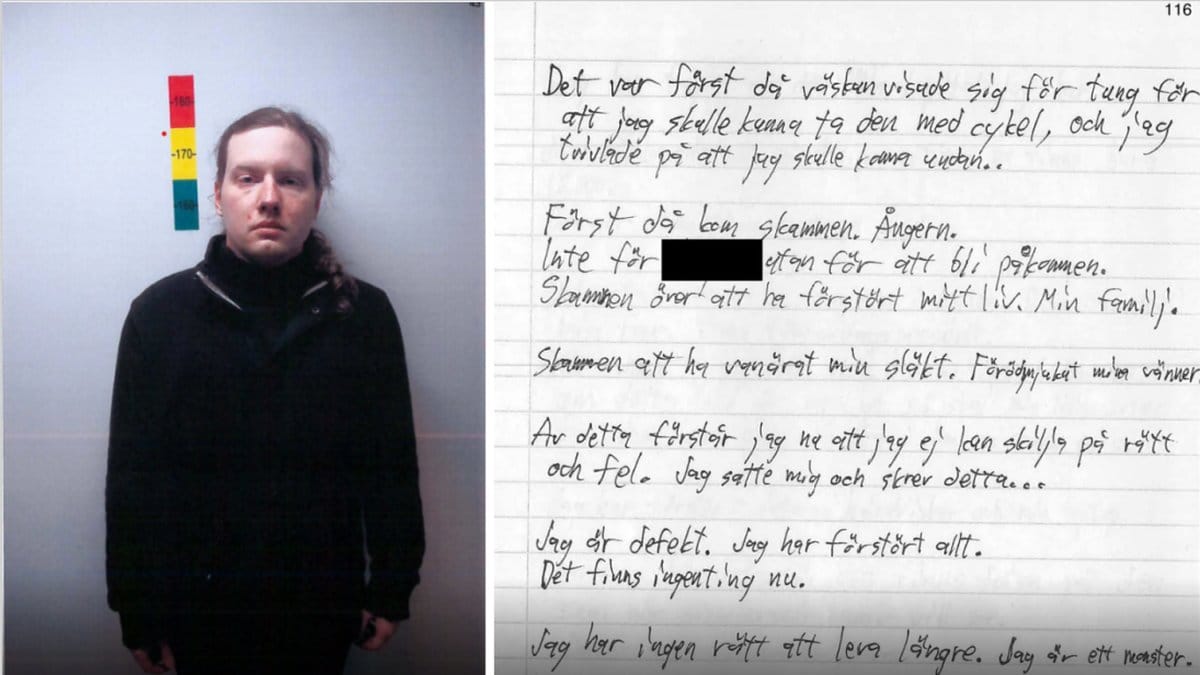 43
-180-
-170-
-160-
116
Det var först då väskan visade sig för tung för
att jag skulle kunna ta den med cykel, och jag
tvivlade på att jag skulle komma undan..
Först då kom skammen. Ångern.
Inte för utan för att bli påkommen.
Skammen över att ha förstört mitt liv. Min familj.
Skammen att ha vanärat min släkt. Förödmjukat mina vänner
Av detta förstår jag nu att jag ej kan skilja på rätt
och fel. Jag satte mig och skrev detta...
Jag är defekt. Jag har förstört allt.
Det finns ingenting nu.
Jag har ingen rätt att leva längre. Jag är ett monster.